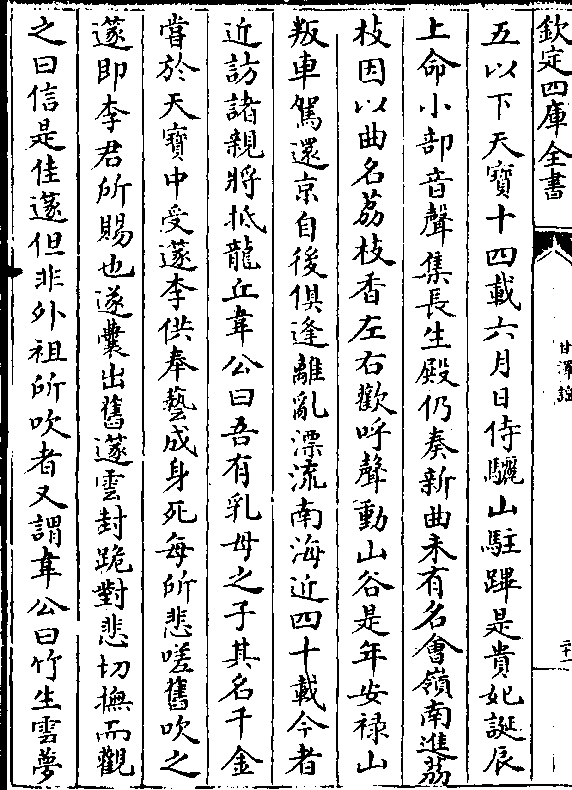 欽定四庫全書
甘澤謠
五以下天寶十四載六月日侍驪山駐蹕是貴妃誕辰
上命小部音聲集長生殿仍奏新曲未有名會嶺南進荔
枝因以曲名荔枝香左右歡呼聲動山谷是年安禄山
叛車駕還京自後俱逢離亂漂流南海近四十載今者
近訪諸親將抵龍丘韋公曰吾有乳母之子其名千金
嘗於天寶中受篴李供奉藝成身死每所悲嗟舊吹之
篴即李君所賜也遂囊出舊篴雲封跪對悲切撫而觀
之曰信是佳篴但非外祖所吹者又謂韋公曰竹生雲夢